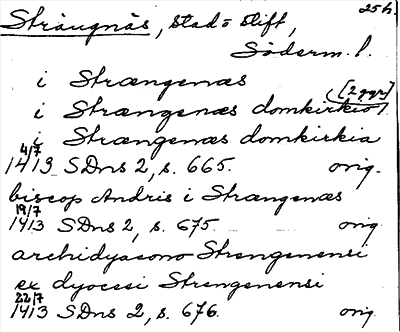 25h.
Strängnäs, stad o stift,
Söderm. l.
i Strængenæs
[2 ggr]
i Strængenæs domkirkio
i Strængenæs domkirkia
4/7
1413 SDns 2, s. 665. orig.
biscop Andris i Strængenæs
19/7
1413 SDns 2, s. 675. orig
archidyacono Strengenensi
ex dyocesi Strengenensi
22/7
1413 SDns 2, s. 676. orig.